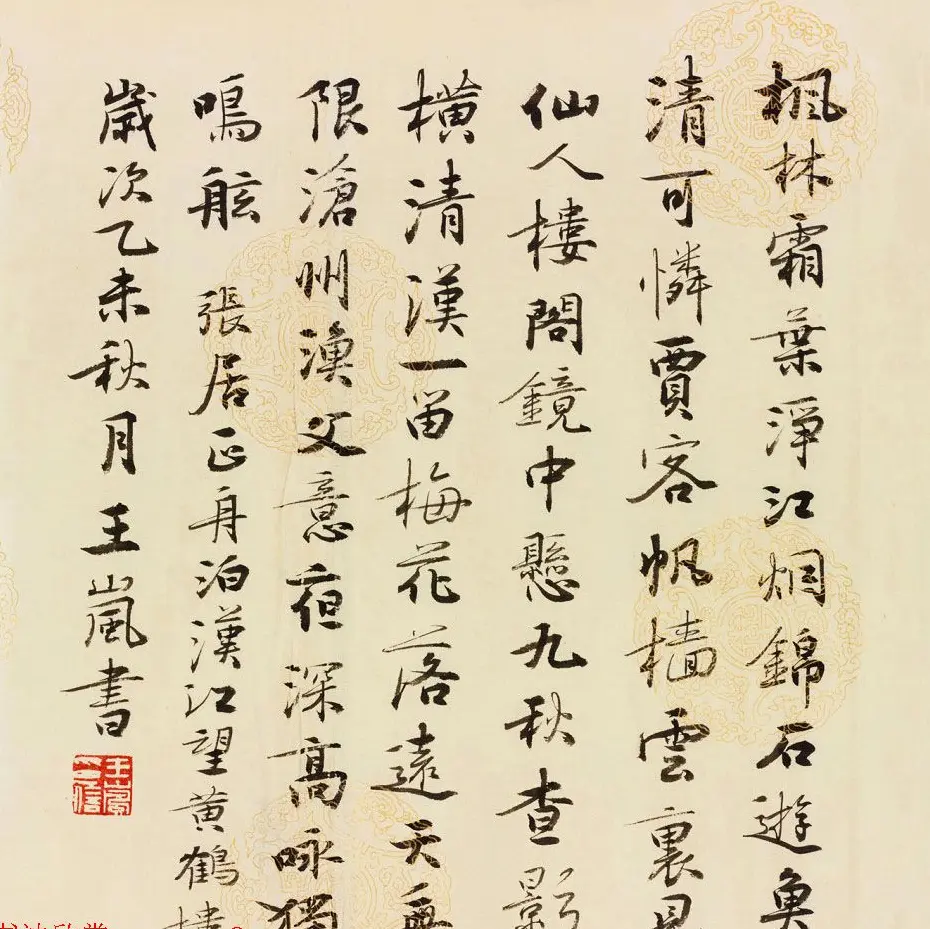 楓林霜葉淨江烟錦石遊魚
清可憐賈客帆檣雲裏見
仙人樓閣鏡中懸九秋查影
橫清漢一笛梅花落遠天無
限滄州漁父意夜深高咏獨
鳴舷 張居正舟泊漢江望黃鶴樓
歲次乙未秋月王嵐書